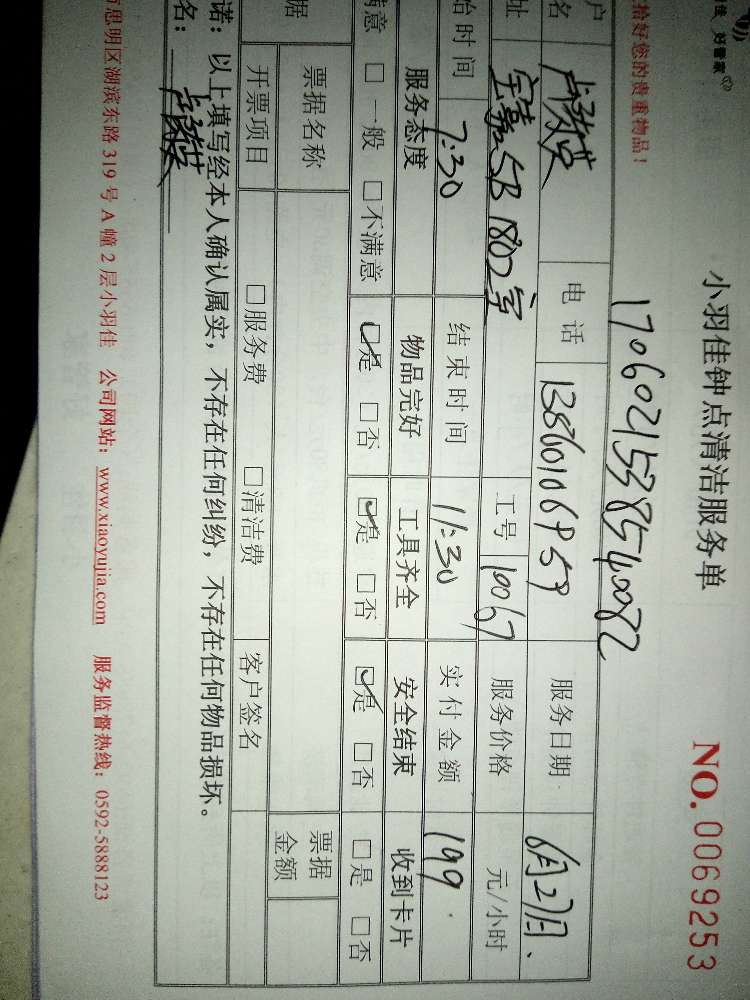 好管家
小羽佳钟点清洁服务单
NO. 0069253
拾好您的贵重物品！
1706021538540082
户名 电话 13860106959 服务日期 6月2日
址 宝嘉5B 1802室 工号 10067 服务价格 元/小时
始时间 7:30 结束时间 11:30 实付金额 199
服务态度 物品完好 工具齐全 安全结束 收到卡片
满意 □一般 □不满意 ☑是 □否 ☑是 □否 ☑是 □否 □是 □否
据 票据名称 票据金额
开票项目 □服务费 □清洁费 客户签名
诺：以上填写经本人确认属实，不存在任何纠纷，不存在任何物品损坏。
名：
市思明区湖滨东路319号A幢2层小羽佳 公司网站：www.xiaoyujia.com 服务监督热线：0592-5888123